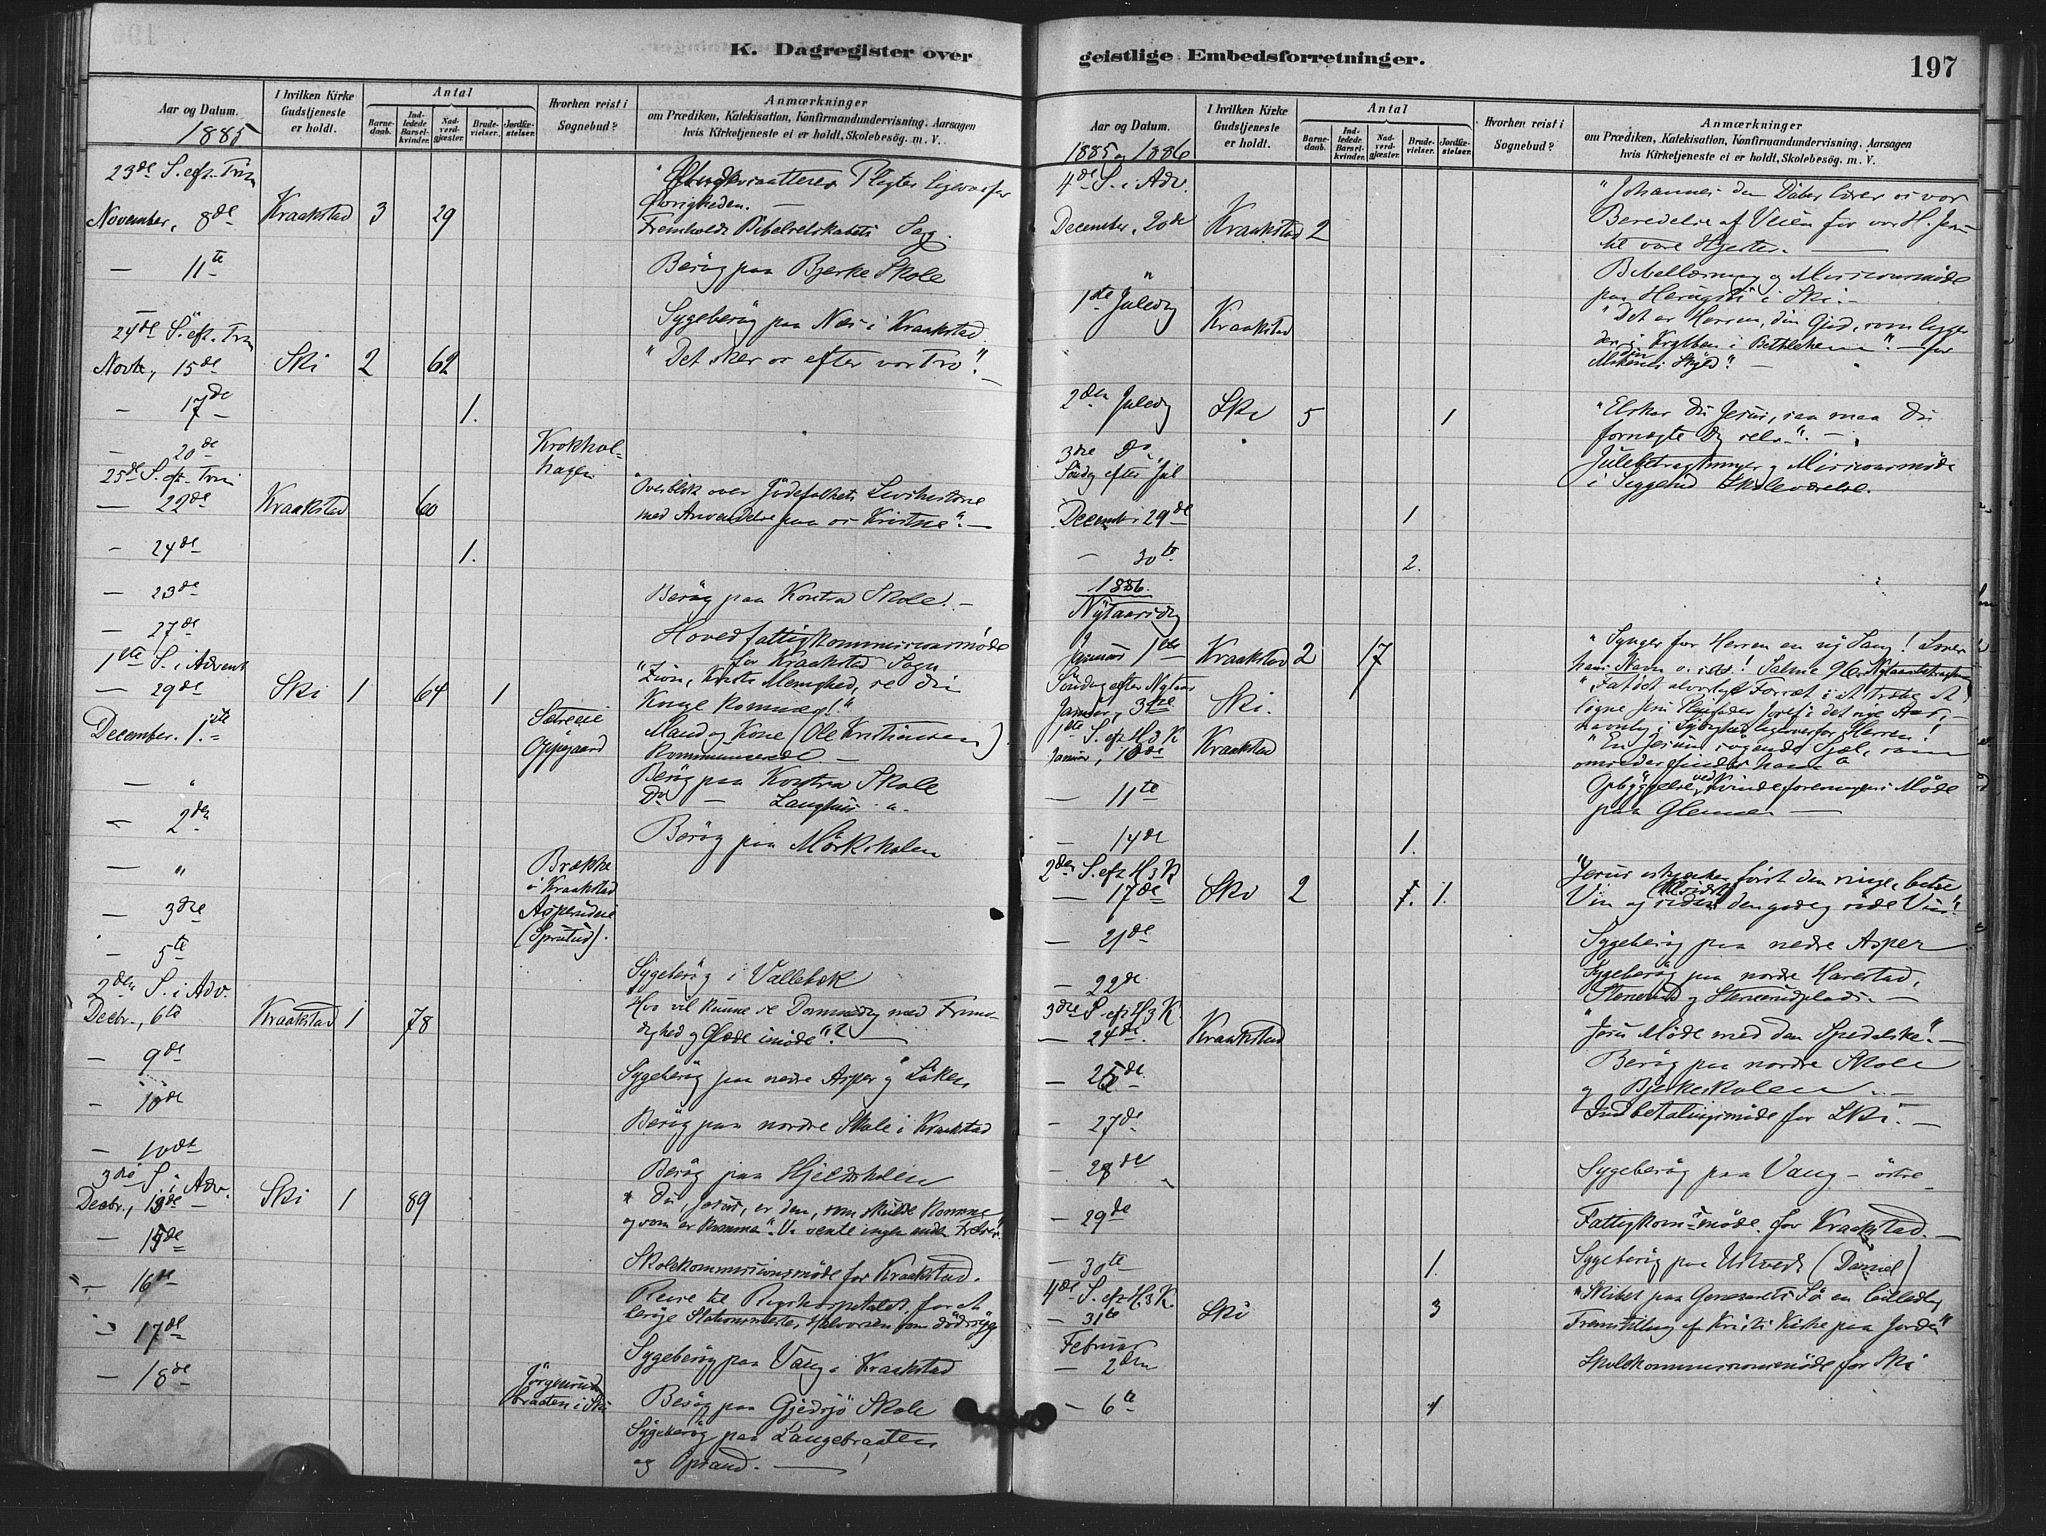 K. Dagregister over
geistlige Embedsforretninger.
197
Aar og Datum.
1885
I hvilken Kirke Gudstjeneste er holdt.
Antal
Barnedaab.
Indledede Barselkvinder.
Nadverdgjæster.
Brudevielser.
Jordfæstelser.
Hvorhen reist i Sognebud?
Anmærkninger
om Prædiken, Katekisation, Konfirmandundervisning, Aarsagen
hvis Kirketjeneste ei er holdt, Skolebesøg. m. V.
23de S. eft. Trin
November, 8de Kraakstad 3 29
Pligter ligeoverfor
Øvrigheden. —
Fremholdt Bibelselskabets Sag.
— 11te Besøg paa Bjerke Skole
Sygebesøg paa Næs i Kraakstad
24de S. eft. Trin
Novbr, 15de Ski 2 62 "Det sker os efter vor Tro". —
— 17de 1.
— 20de Krokholhagen
25de S. ef. Trin
— 22de Kraakstad 60 Overblik over Jødefolkets Livshistorie
med Anvendelse paa os Kristne". —
— 24de 1.
— 23de Besøg paa Kontra Skole. —
— 27de Hovedfattigkommissionsmøde
for Kraakstad Sogn
1ste S. i Advent
— 29de Ski 1 64 1 "Zion, Kristi Menighed, se din
Konge kommer!"
December. 1ste Sætreeie Oppegaard Mand og Kone (Ole Kristiansen)
Kommunicerede —
— " Besøg paa Kontra Skole
Do — Langhus "
— 2den Besøg paa Mørkskolen
— " Brække i Kraakstad
— 3die Asperudeie (Sprutud).
— 5te Sygebesøg i Vallebæk
2den S. i Adv.
Decbr., 6te Kraakstad 1 78 Hvo vil kunne se Dommedag med Frimodighed
og Glæde imøde"? —
— 9de Sygebesøg paa nedre Asper og Løken
— 10de Besøg paa nordre Skole i Kraakstad
— 10de Besøg paa Hjelskolen
3die S. i Adv.
Decbr., 13de Ski 1 89 "Du, Jesus, er den, som skulde komme
og som er kommen". Vi vente ingen anden Frelser"
— 15de Skolekommissionsmøde for Kraakstad.
— 16de Reise til Rigshospitalet, for at
besøge Stationsmester Halvorsen som dødssyg
— 17de Sygebesøg paa Vang i Kraakstad
— 18de Jørgensrud braaten i Ski Besøg paa Gjedsjø Skole
Sygebesøg paa Langebraaten
og Oprand. —
Aar og Datum.
1885 og 1886
I hvilken Kirke Gudstjeneste er holdt.
Antal
Barnedaab.
Indledede Barselkvinder.
Nadverdgjæster.
Brudevielser.
Jordfæstelser.
Hvorhen reist i Sognebud?
Anmærkninger
om Prædiken, Katekisation, Konfirmandundervisning, Aarsagen
hvis Kirketjeneste ei er holdt, Skolebesøg. m. V.
4de S. i Adv.
December, 20de Kraakstad 2 "Johannes den Døber lærer os vor
Beredelse af Veien for vor H. Jesu
til vore Hjerter. —
" Bibellæsning og Missionsmøde
paa Haugsti i Ski. —
1ste Juledag Kraakstad "Det er Herren, din Gud, som ligger
der i Krybben i Bethlehem" — for
din Skyld". —
2den Juledag Ski 5 1 "Elsker Du Jesus, saa maa Du
fornegte Dig selv". —
3die Do.,
Søndag efter Jul Julebetragtninger og Missionsmøde
i Siggerud Skoleværelse.
Decembr 29de 1
— 30te 2.
1886.
Nytaarsdag
Januar 1ste Kraakstad 2 17 "Synger for Herren en ny Sang! Lover
hans Navn
Søndag efter Nytaar
Januar, 3die Ski.
ligeoverfor Herren!
1ste S. ef. H3K
Januar, 10de Kraakstad "En Jesum søgende Sjæl, som
omsider finder ham"
— 11te Opbyggelse ved Kvindeforeningens Møde
paa Glenne —
— 14de 1.
2den S. ef. H3K
— 17de Ski 2 7. 1. "Jesus skjænker først den ringe, beske
Vin og siden den gode, søde Vin".
— 21de Sygebesøg paa nedre Asper
— 22de Sygebesøg paa nordre Harestad,
Stenerud og Stenerudplads. —
3die S. ef. H3K.
— 24de. Kraakstad "Jesu Møde med den Spedalske". —
— 25de Besøg paa nordre Skole
og Bjerkeskolen. —
— 27de Indbetalingsmøde for Ski. —
— 28de Sygebesøg paa Vang — østre
— 29de Fattigkom.smøde for Kraakstad. —
— 30te 1. Sygebesøg paa Utvedt (Daniel)
4de S. ef. H3K
— 31te Ski 3 "Skibet paa Genesarets Sø en billedlig
Fremstilling af Kristi Kirke paa Jorden"
Februar
— 2den Skolekommissionsmøde for Ski
— 6te 1